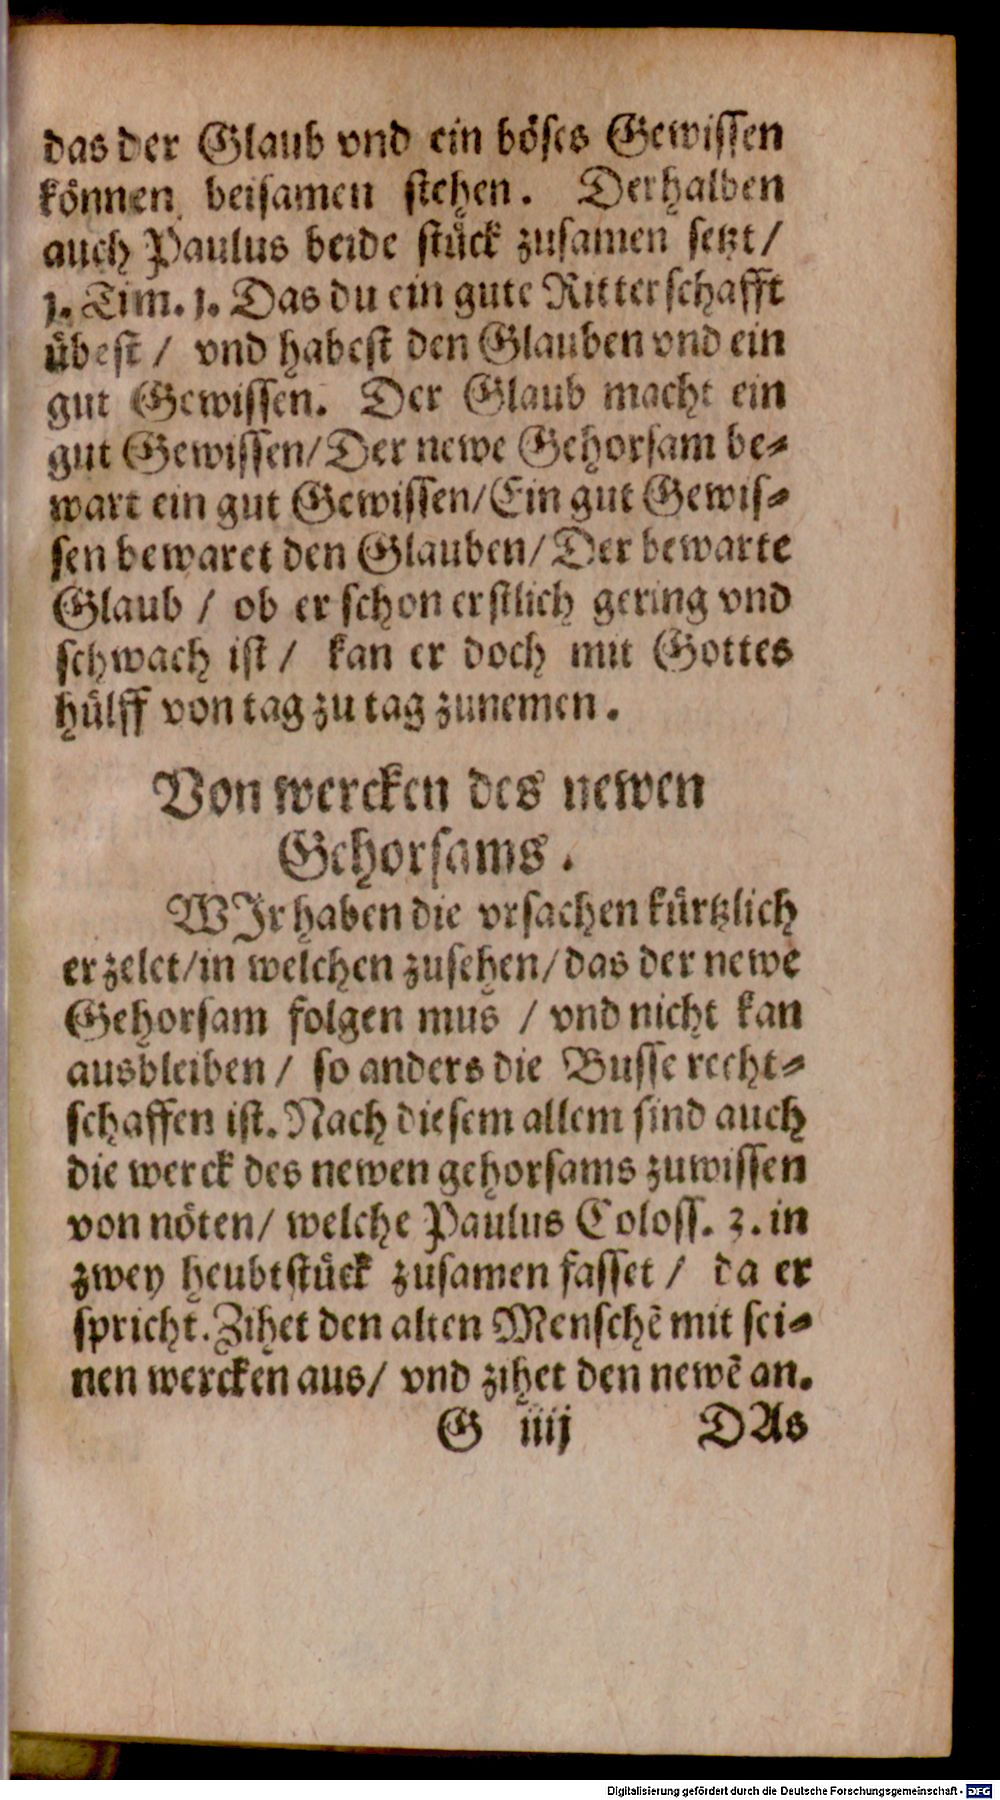 das der Glaub vnd ein böses Gewissen
können beisamen stehen. Derhalben
auch Paulus beide stück zusamen setzt/
1. Tim. 1. Das du ein gute Ritterschafft
übest / vnd habest den Glauben vnd ein
gut Gewissen. Der Glaub macht ein
gut Gewissen/Der newe Gehorsam be-
wart ein gut Gewissen/Ein gut Gewis-
sen bewaret den Glauben/Der bewarte
Glaub / ob er schon erstlich gering vnd
schwach ist / kan er doch mit Gottes
hülff von tag zu tag zunemen.
Von wercken des newen
Gehorsams.
WIr haben die vrsachen kürtzlich
erzelet/in welchen zusehen/das der newe
Gehorsam folgen mus / vnd nicht kan
ausbleiben / so anders die Busse recht-
schaffen ist. Nach diesem allem sind auch
die werck des newen gehorsams zuwissen
von nöten/ welche Paulus Coloss. 3. in
zwey heubtstück zusamen fasset / da er
spricht. Zihet den alten Menschē mit sei-
nen wercken aus/ vnd zihet den newē an.
G iiij DAs
Digitalisierung gefördert durch die Deutsche Forschungsgemeinschaft - DFG